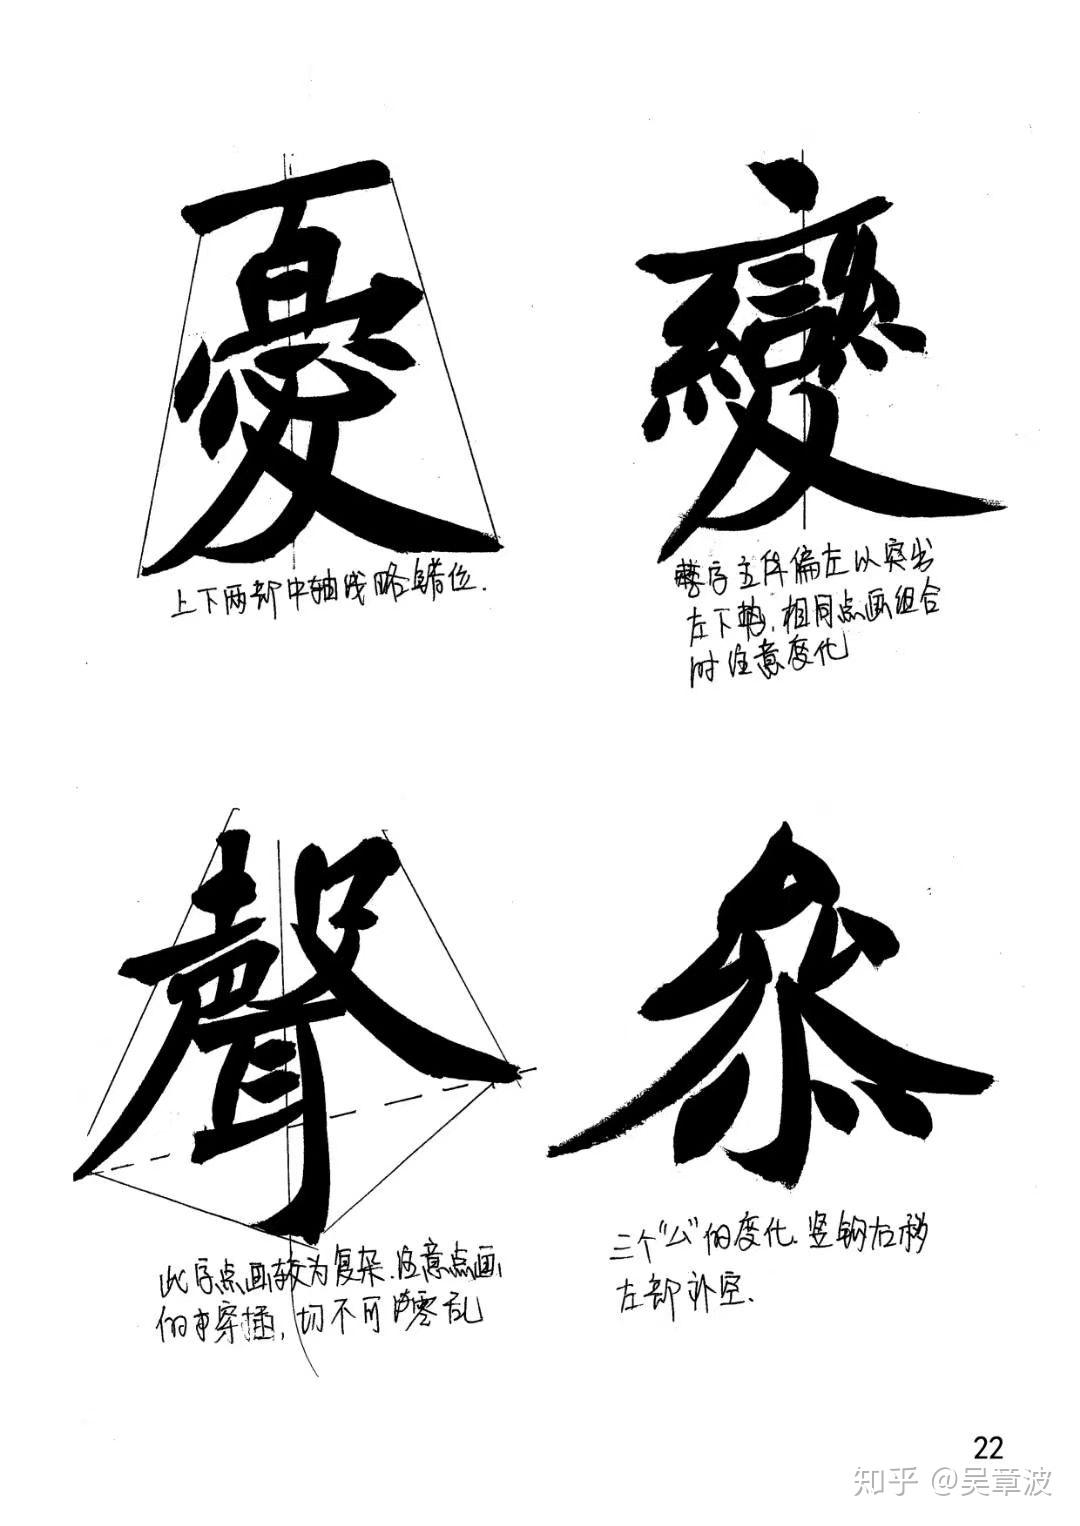 憂 變
上下两部中轴线略错位.
整字主体偏左以突出
右下,相同点画组合
时注意变化
聲 叅
此字点画较为复杂.注意点画
的穿插,切不可零乱
三个"厶"的变化.竖钩右移
左部补空.
22
知乎 @吴章波